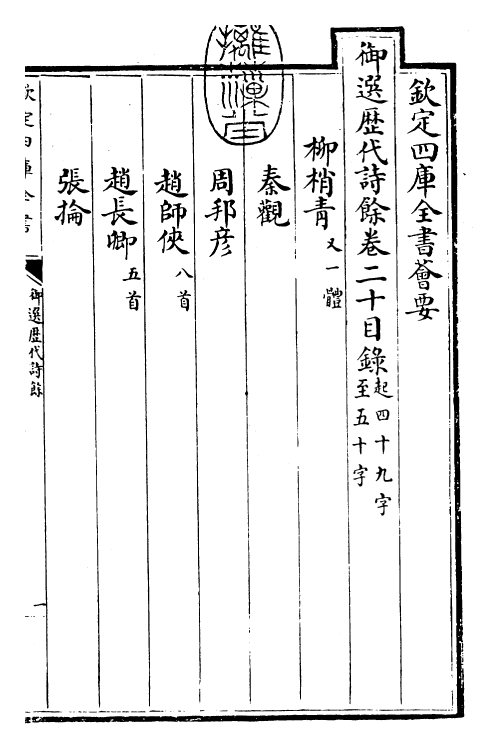 欽定四庫全書薈要
御選歴代詩餘卷二十目錄起四十九字至五十字
柳梢青又一體
秦觀
周邦彦
趙師俠八首
趙長卿五首
張掄
欽定四庫全書
御選歴代詩餘
一